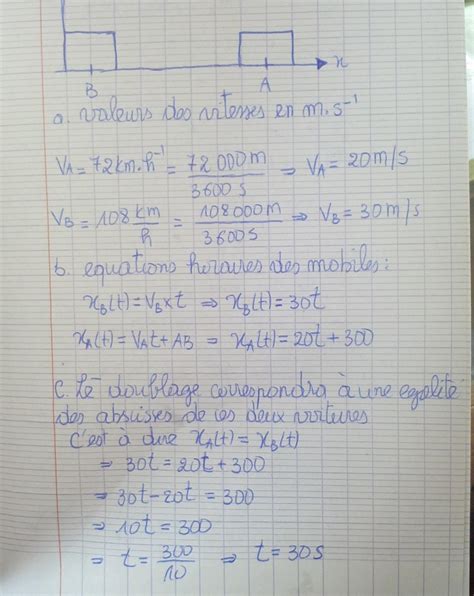 x
B A
a. Valeurs des vitesses en m.s⁻¹
VA = 72 km.h⁻¹ = 72 000m / 3600 s ⇒ VA = 20 m/s
VB = 108 km/h = 108 000m / 3600 s ⇒ VB = 30 m/s
b. equations horaires des mobiles:
xB(t) = VB×t ⇒ xB(t) = 30t
xA(t) = VAt + AB ⇒ xA(t) = 20t + 300
C. Le doublage correspondra à une egalité
des abscisses de ces deux voitures
C'est à dire xA(t) = xB(t)
⇒ 30t = 20t + 300
⇒ 30t - 20t = 300
⇒ 10t = 300
⇒ t = 300/10 ⇒ t = 30s